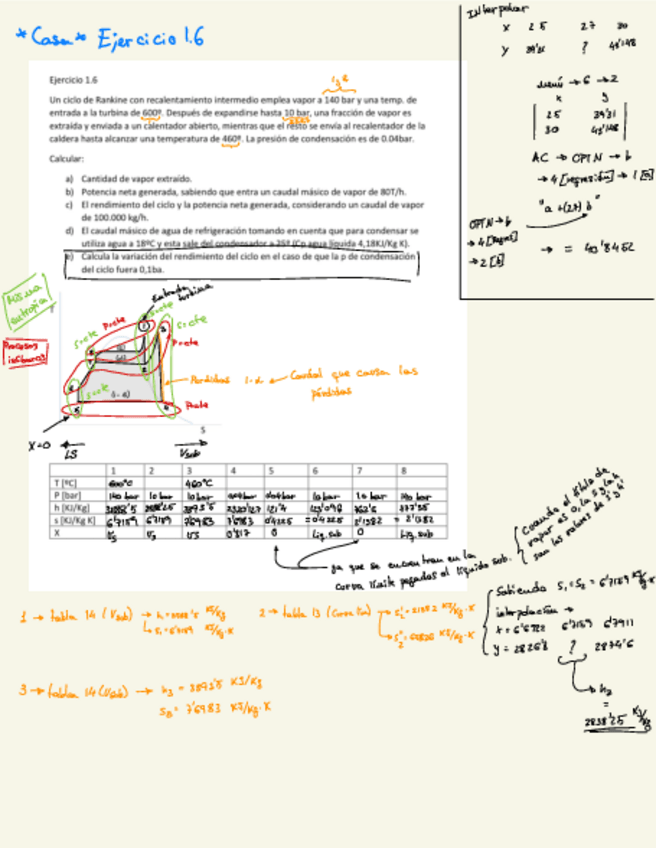 *Casa* Ejercicio 1.6
Interpolar
x 25 27 30
y 39'31 ? 43'148
Menú → 6 → 2
x y
25 39'31
30 43'148
AC → OPTN → b
→ 4 [regresión] → 1 [a]
"a + (27) b"
OPTN → b
→ 4 [regres]
→ 2 [b]
→ = 40'8452
Ejercicio 1.6
Un ciclo de Rankine con recalentamiento intermedio emplea vapor a 140 bar y una temp. de
entrada a la turbina de 600º. Después de expandirse hasta 10 bar, una fracción de vapor es
extraída y enviada a un calentador abierto, mientras que el resto se envía al recalentador de la
caldera hasta alcanzar una temperatura de 460º. La presión de condensación es de 0.04bar.
Calcular:
a) Cantidad de vapor extraído.
b) Potencia neta generada, sabiendo que entra un caudal másico de vapor de 80T/h.
c) El rendimiento del ciclo y la potencia neta generada, considerando un caudal de vapor
de 100.000 kg/h.
d) El caudal másico de agua de refrigeración tomando en cuenta que para condensar se
utiliza agua a 18ºC y esta sale del condensador a 25º (Cp agua líquida 4,18KJ/Kg K).
e) Calcula la variación del rendimiento del ciclo en el caso de que la p de condensación
del ciclo fuera 0,1ba.
Misma
entropía
Procesos
isóbaros
Entrada
turbina
P=cte
S=cte
S=cte
P=cte
S=cte
S=cte
(1-α)
P=cte
Pérdidas 1-α ← Caudal que causa las
pérdidas
S
X=0
LS
Vsob
1 2 3 4 5 6 7 8
T [ºC] 600ºC 460ºC
P [bar] 140 bar 10 bar 10 bar 0'04 bar 0'04 bar 10 bar 10 bar 140 bar
h [KJ/Kg] 2838'25 3893'5 2320'127 121'4 762'6
s [KJ/Kg K] 6'7159 6'7159 7'6983 7'6983 0'4225 =0'4225 2'1382 =2'1382
X VS VS VS 0'817 0 Liq. sub 0 Liq. sub
ya que se encuentran en la
curva límite pegados al líquido sub.
Cuando el título de
vapor es 0, la s y la h
son los valores de s' y h'
1 → tabla 14 (Vsob) → h₁ = KJ/Kg
↳ s₁ = 6'7159 KJ/Kg·K
2 → tabla 13 → s'₂ = 2'1382 KJ/Kg·K
→ s''₂ = KJ/Kg·K
3 → tabla 14 (Vsob) → h₃ = 3893'5 KJ/Kg
s₃ = 7'6983 KJ/Kg·K
Sabiendo S₁ = S₂ = 6'7159 KJ/Kg·K
interpolación →
x = 6'6722 6'7159 6'7911
y = 2826'8 ? 2874'6
h₂
=
2838'25 KJ/Kg